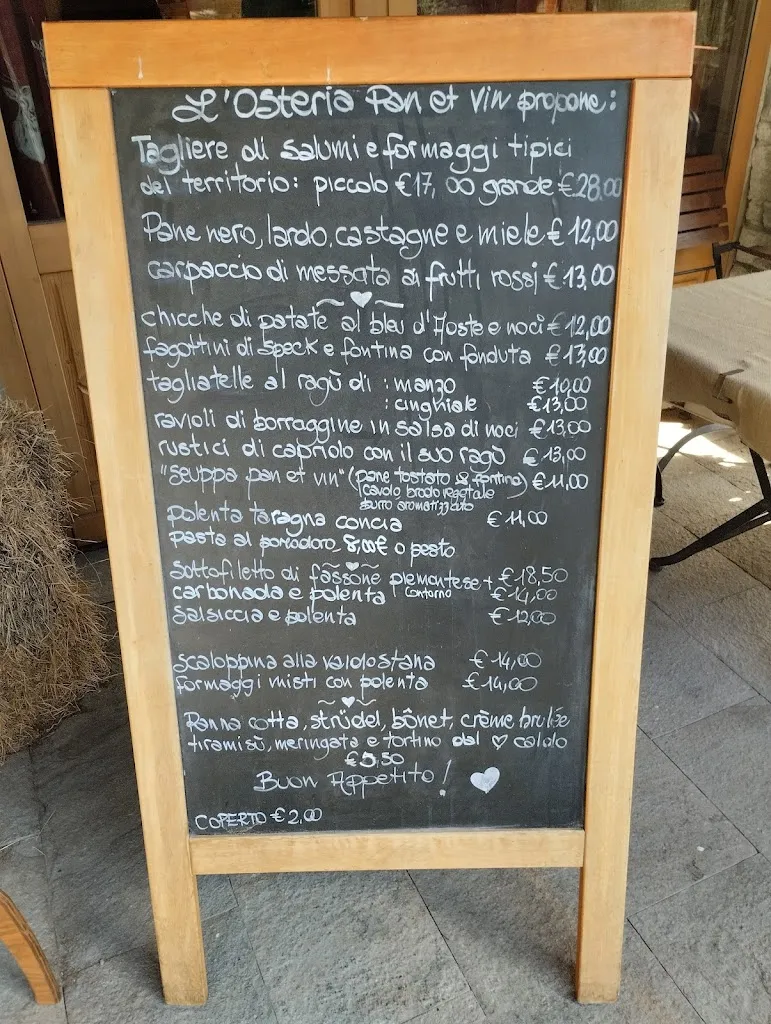 L'Osteria Pan et vin propone:
Tagliere di salumi e formaggi tipici
del territorio: piccolo €17,00 grande €28,00
Pane nero, lardo, castagne e miele €12,00
carpaccio di messata ai frutti rossi €13,00
chicche di patate al bleu d'Aoste e noci €12,00
fagottini di speck e fontina con fonduta €13,00
tagliatelle al ragù di : manzo €10,00
: cinghiale €13,00
ravioli di borraggine in salsa di noci €13,00
rustici di capriolo con il suo ragù €13,00
"seuppa pan et vin" (pane tostato e fontina) €11,00
cavolo brodo vegetale
burro aromatizzato
polenta taragna concia €11,00
pasta al pomodoro, 8,00€ o pesto
sottofiletto di fassone piemontese + €18,50
contorno
carbonada e polenta €14,00
salsiccia e polenta €12,00
scaloppina alla valdostana €14,00
formaggi misti con polenta €14,00
Panna cotta, strüdel, bônet, crème brulée
tiramisù, meringata e tortino dal ♡ caldo
€5,50
Buon Appetito!
COPERTO €2,00